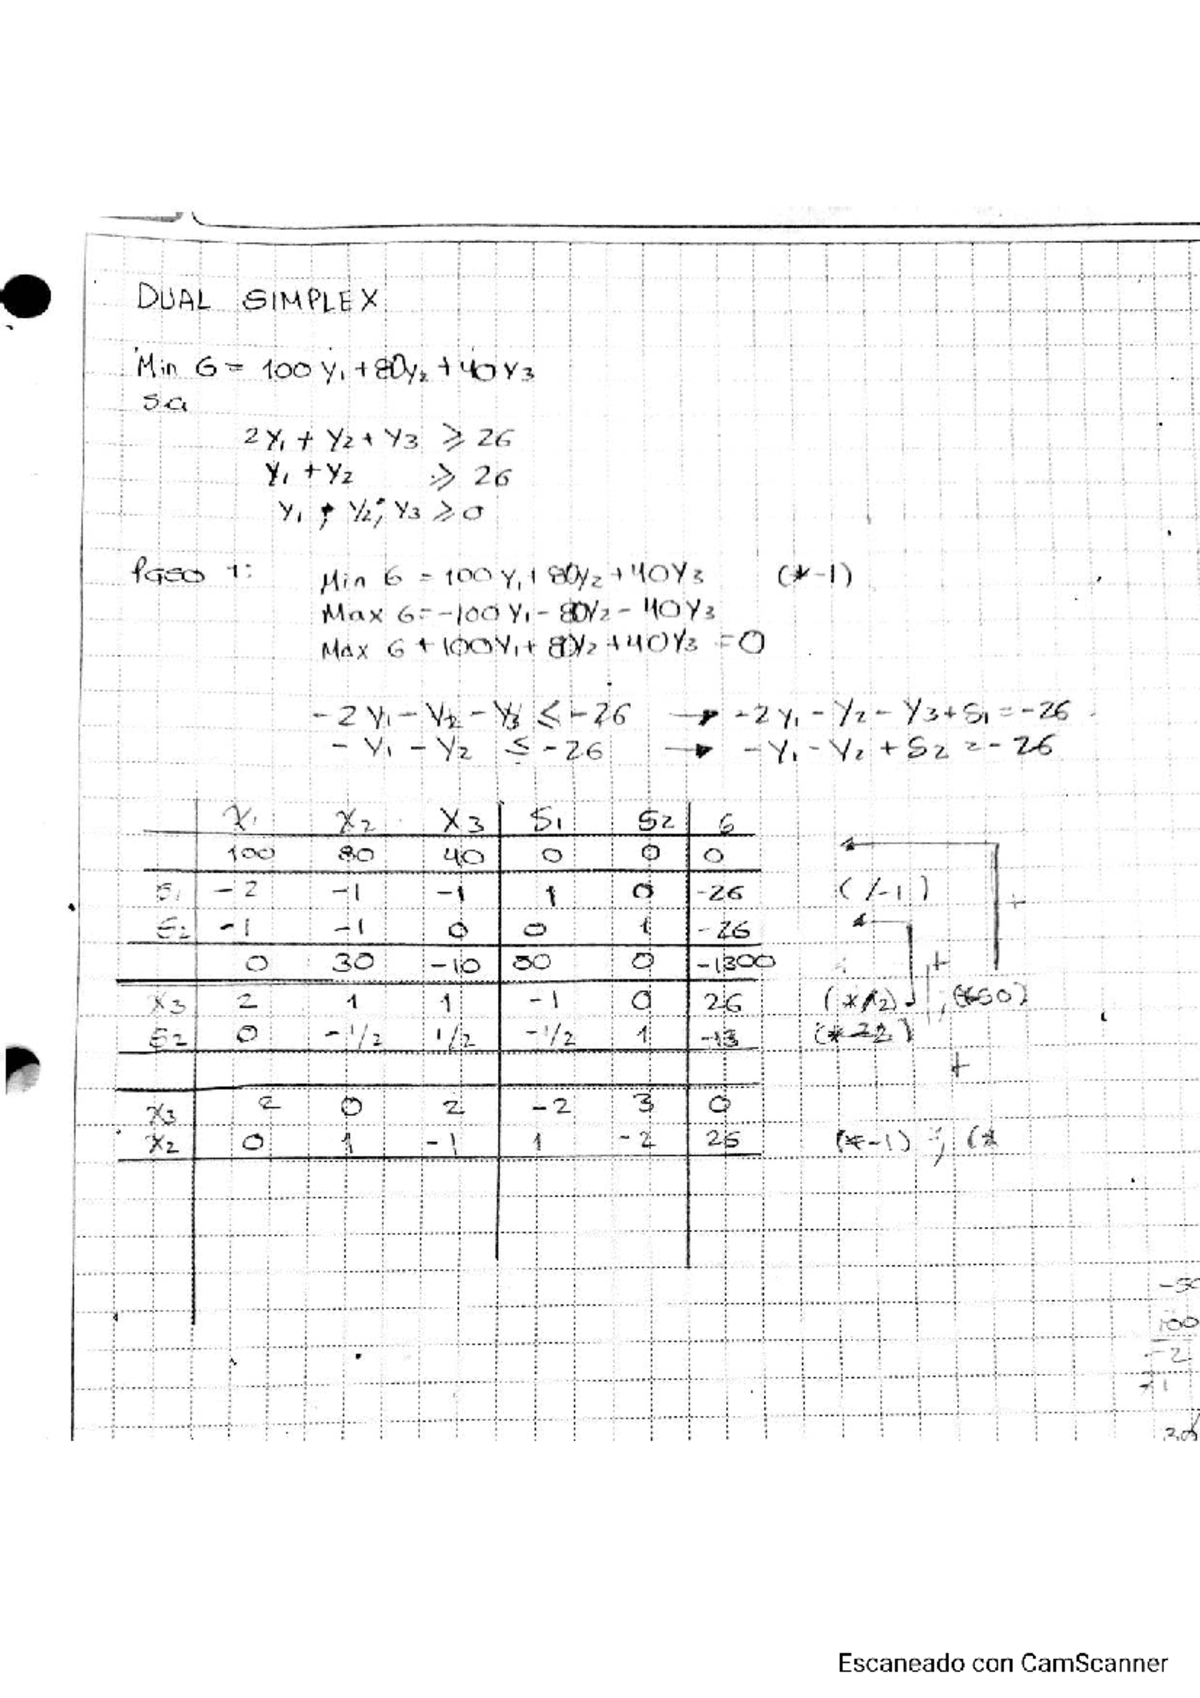 DUAL SIMPLEX
Min G = 100 y₁ + 80y₂ + 40 y₃
sa
2y₁ + y₂ + y₃ ≥ 26
y₁ + y₂ ≥ 26
y₁ ; y₂; y₃ ≥ 0
Paso 1: Min G = 100 y₁ + 80y₂ + 40y₃ (*-1)
Max G = -100 y₁ - 80y₂ - 40y₃
Max G + 100y₁ + 80y₂ + 40y₃ = 0
-2y₁ - y₂ - y₃ ≤ -26 → -2y₁ - y₂ - y₃ + S₁ = -26
-y₁ - y₂ ≤ -26 → -y₁ - y₂ + S₂ = -26
X₁ X₂ X₃ S₁ S₂ G
100 80 40 0 0 0
S₁ -2 -1 -1 1 0 -26 (/-1)
S₂ -1 -1 0 0 1 -26
0 30 -10 50 0 -1300
X₃ 2 1 1 -1 0 26
S₂ 0 -1/2 1/2 -1/2 1 -13
X₃ 2 0 2 -2 3 0
X₂ 0 1 -1 1 -2 26 (*-1) ; (*
100
-2
Escaneado con CamScanner